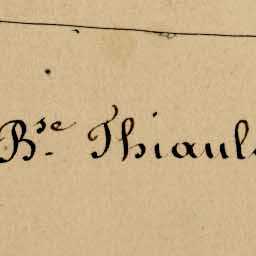 Bse Thiaul